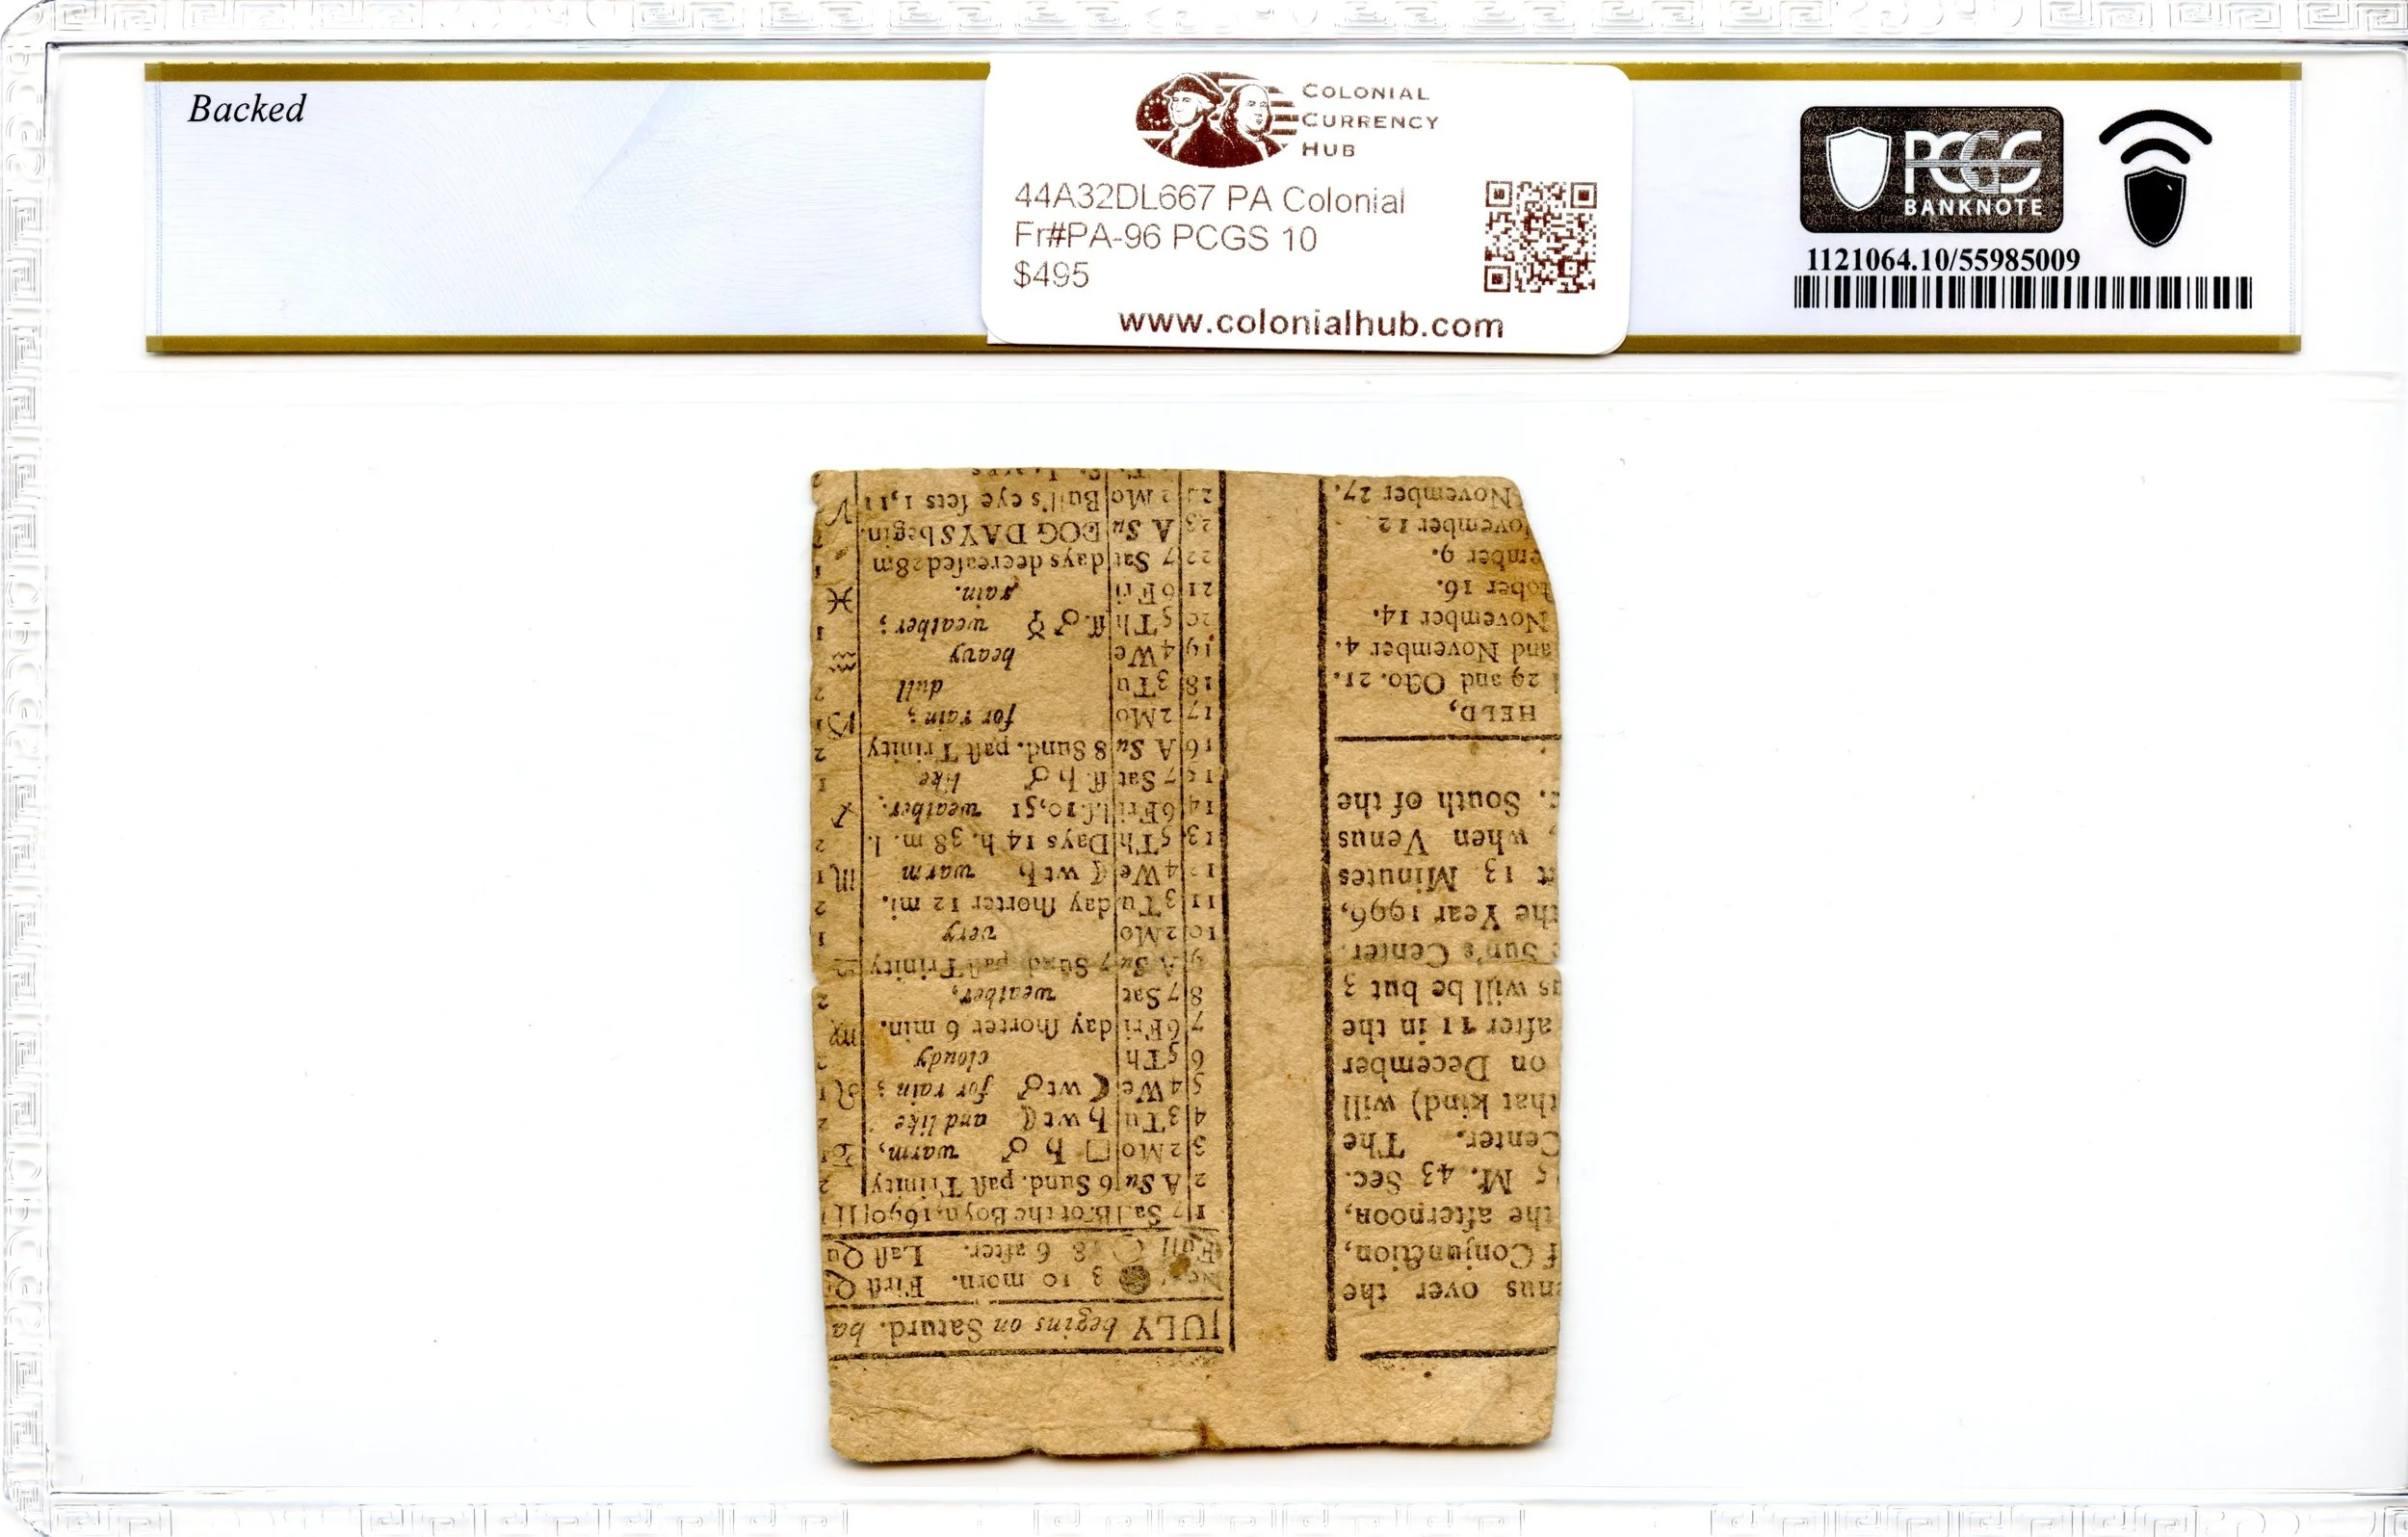 Backed
COLONIAL
CURRENCY
HUB
44A32DL667 PA Colonial
Fr#PA-96 PCGS 10
$495
www.colonialhub.com
PCGS
BANKNOTE
1121064.10/55985009
enus over the
f Conjunction,
the afternoon,
5 M. 43 Sec.
Center. The
that kind) will
on December
after 11 in the
us will be but 3
Sun's Center.
the Year 1996,
t 13 Minutes
, when Venus
. South of the
HELD,
29 and Octo. 21.
and November 4.
November 14.
tober 16.
ember 9.
ovember 12
November 27.
JULY begins on Saturd. ba
3 10 morn. Firſt Q
Full 18 6 after. Laſt Qu
1 7 Sa B. of the Boyn, 1690
2 A Su 6 Sund. paſt Trinity 2
3 2 Mo □ ♄ ♂ warm, ♋
4 3 Tu ♄ wt ☾ and like 2
5 4 We ☾ wt ♂ for rain ; ♌ 1
6 5 Th cloudy 2
7 6 Fri day ſhorter 6 min. ♍
8 7 Sat weather, 2
9 A Su 7 Sund paſt Trinity ♎
10 2 Mo very 1
11 3 Tu day ſhorter 12 mi. 2
12 4 We ☾ wt ♄ warm ♏ 1
13 5 Th Days 14 h. 38 m. l. 2
14 6 Fri 10,51 weather, ♐
15 7 Sat ſſ. ♄ ♂ like 1
16 A Su 8 Sund. paſt Trinity 2
17 2 Mo for rain ; ♑ 1
18 3 Tu dull 2
19 4 We heavy ♒
20 5 Th ſſ. ♂ ☿ weather ; 1
21 6 Fri rain. ♓
22 7 Sat days decreaſed 28m 1
23 A Su DOG DAYS begin.
24 2 Mo Bull's eye ſets 1,11